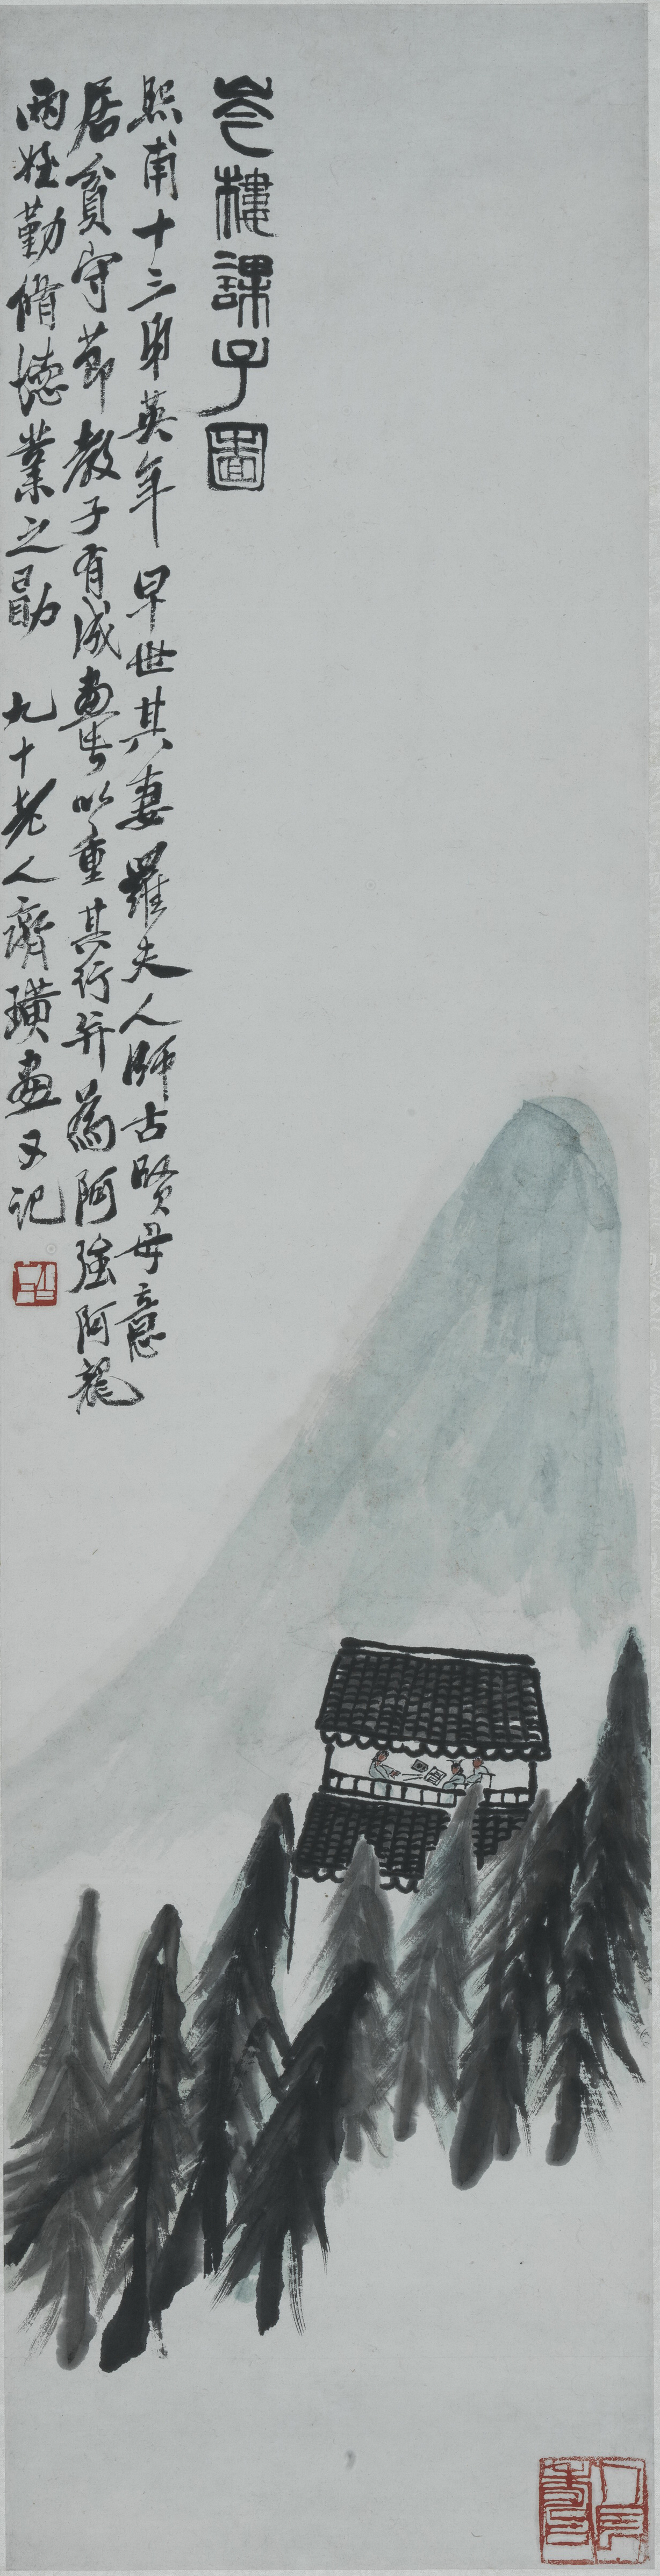 岑樓課子圖
熙甫十三弟英年早世其妻羅夫人師古賢母意
居貧守節教子有成畫此以重其行并為阿強阿龍
兩姪勤脩德業之勖 九十老人齊璜畫又記